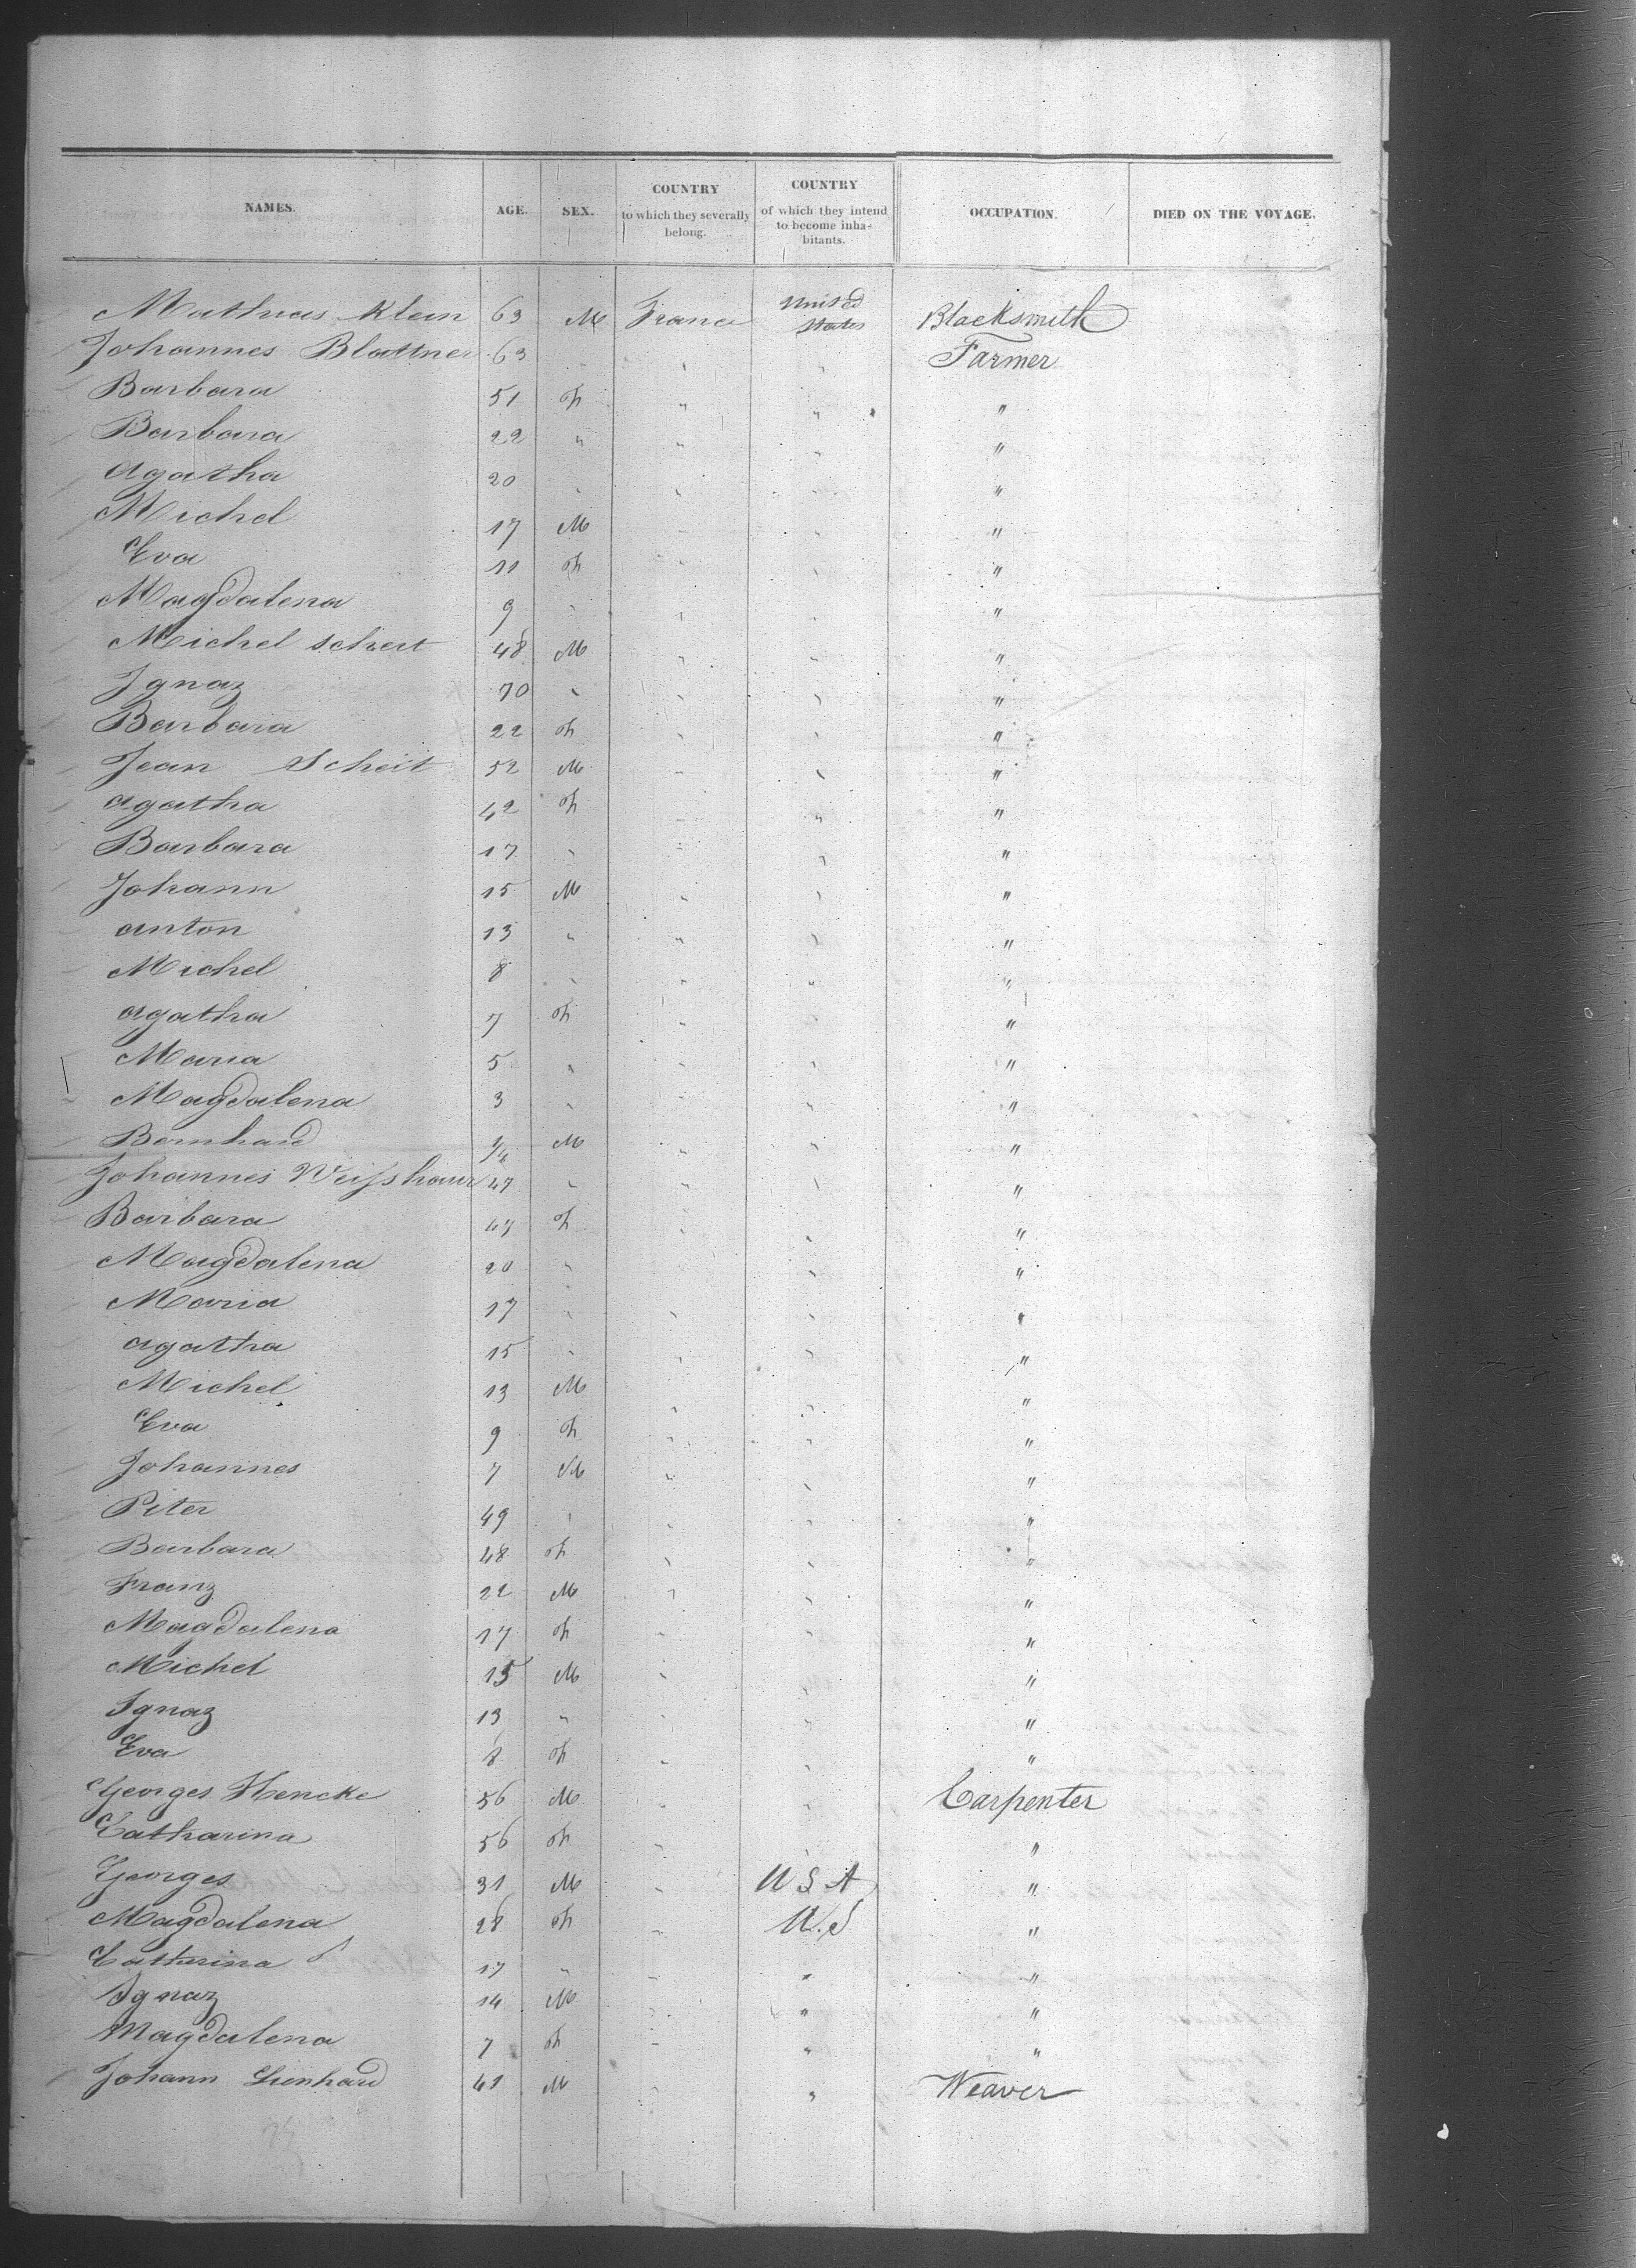 NAMES. AGE. SEX. COUNTRY to which they severally belong. COUNTRY of which they intend to become inha-bitants. OCCUPATION. DIED ON THE VOYAGE.
Mathias Klein 63 M France United States Blacksmith
Johannes Blattner 63 " " " Farmer
Barbara 51 F " " "
Barbara 22 " " " "
Agatha 20 " " " "
Michel 17 M " " "
Eva 11 F " " "
Magdalena 9 " " " "
Michel Scheit 48 M " " "
Ignaz 70 " " " "
Barbara 22 F " " "
Jean Scheit 52 M " " "
Agatha 42 F " " "
Barbara 17 " " " "
Johann 15 M " " "
Anton 13 " " " "
Michel 8 " " " "
Agatha 7 F " " "
Maria 5 " " " "
Magdalena 3 " " " "
Bernhard M " " "
Johannes Weisshaar 47 " " " "
Barbara 47 F " " "
Magdalena 20 " " " "
Maria 17 " " " "
Agatha 15 " " " "
Michel 13 M " " "
Eva 9 F " " "
Johannes 7 M " " "
Piter 49 " " " "
Barbara 48 F " " "
Franz 22 M " " "
Magdalena 17 F " " "
Michel 15 M " " "
Ignaz 13 " " " "
Eva 8 F " " "
Georges Hencke 56 M " " Carpenter
Catharina 56 F " " "
Georges 31 M " U S A "
Magdalena 28 F " U.S "
Catherina 17 " " " "
Ignaz 14 M " " "
Magdalena 7 F " " "
Johann Lienhard 41 M " " Weaver